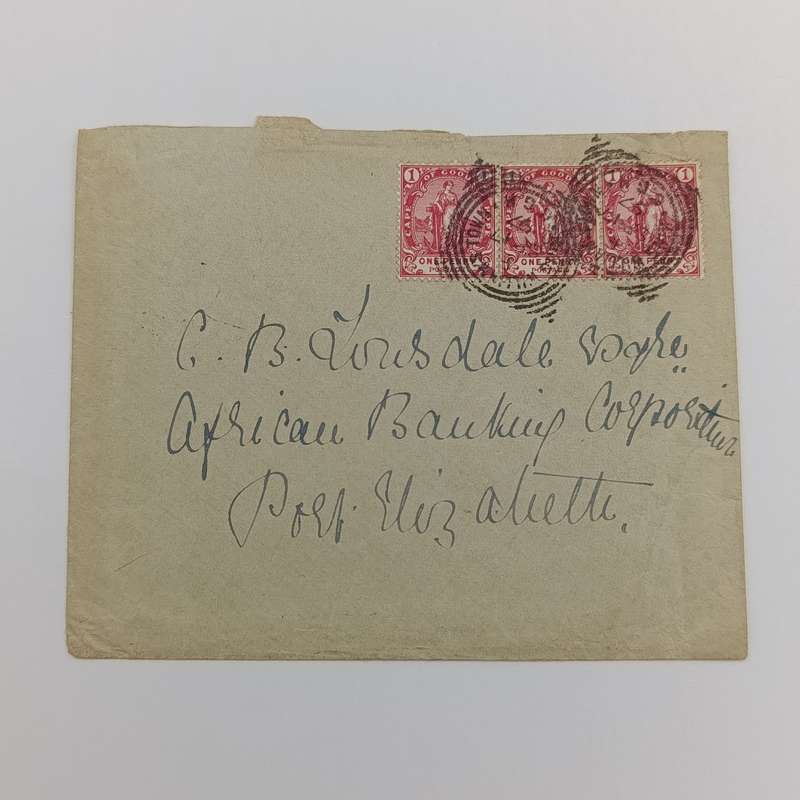 1
CAPE OF GOOD
ONE PENNY
ONE PENNY
1
1
PENNY
C. B. Lonsdale Esqre
African Banking Corporation
Port Elizabeth.